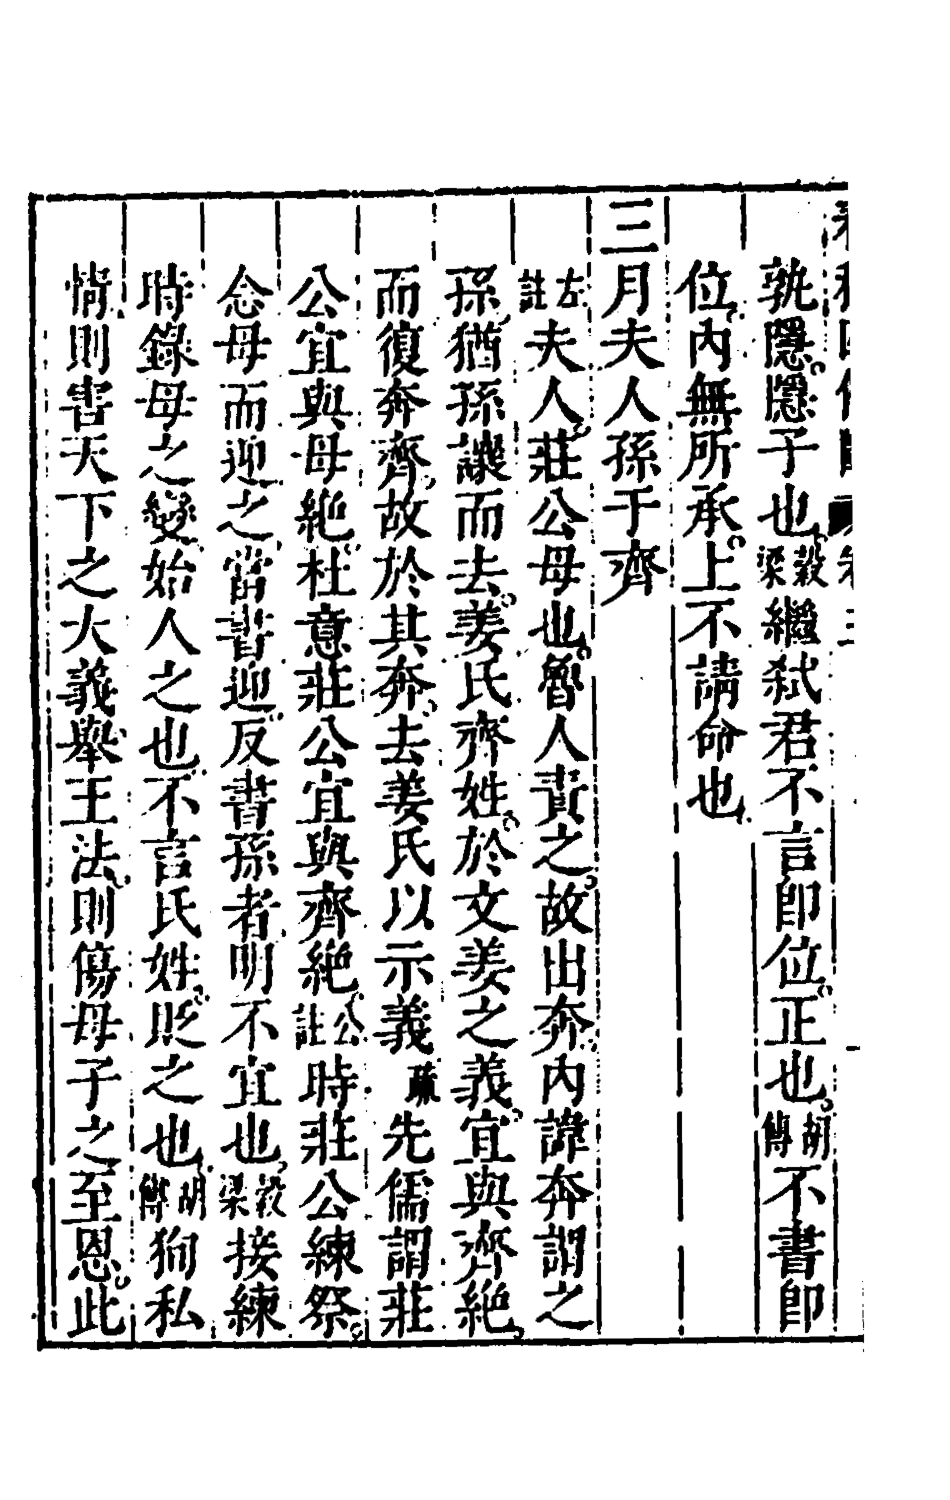 孰隱隱子也穀梁繼弑君不言卽位正也胡傳不書卽
位內無所承上不請命也
三月夫人孫于齊
左註夫人莊公母也魯人責之故出奔內諱奔謂之
孫猶孫讓而去姜氏齊姓於文姜之義宜與齊絕
而復奔齊故於其奔去姜氏以示義疏先儒謂莊
公宜與母絕杜意莊公宜與齊絕公註時莊公練祭
念母而迎之當書迎反書孫者明不宜也穀梁接練
時錄母之變始人之也不言氏姓貶之也胡傳狥私
情則害天下之大義舉王法則傷母子之至恩此